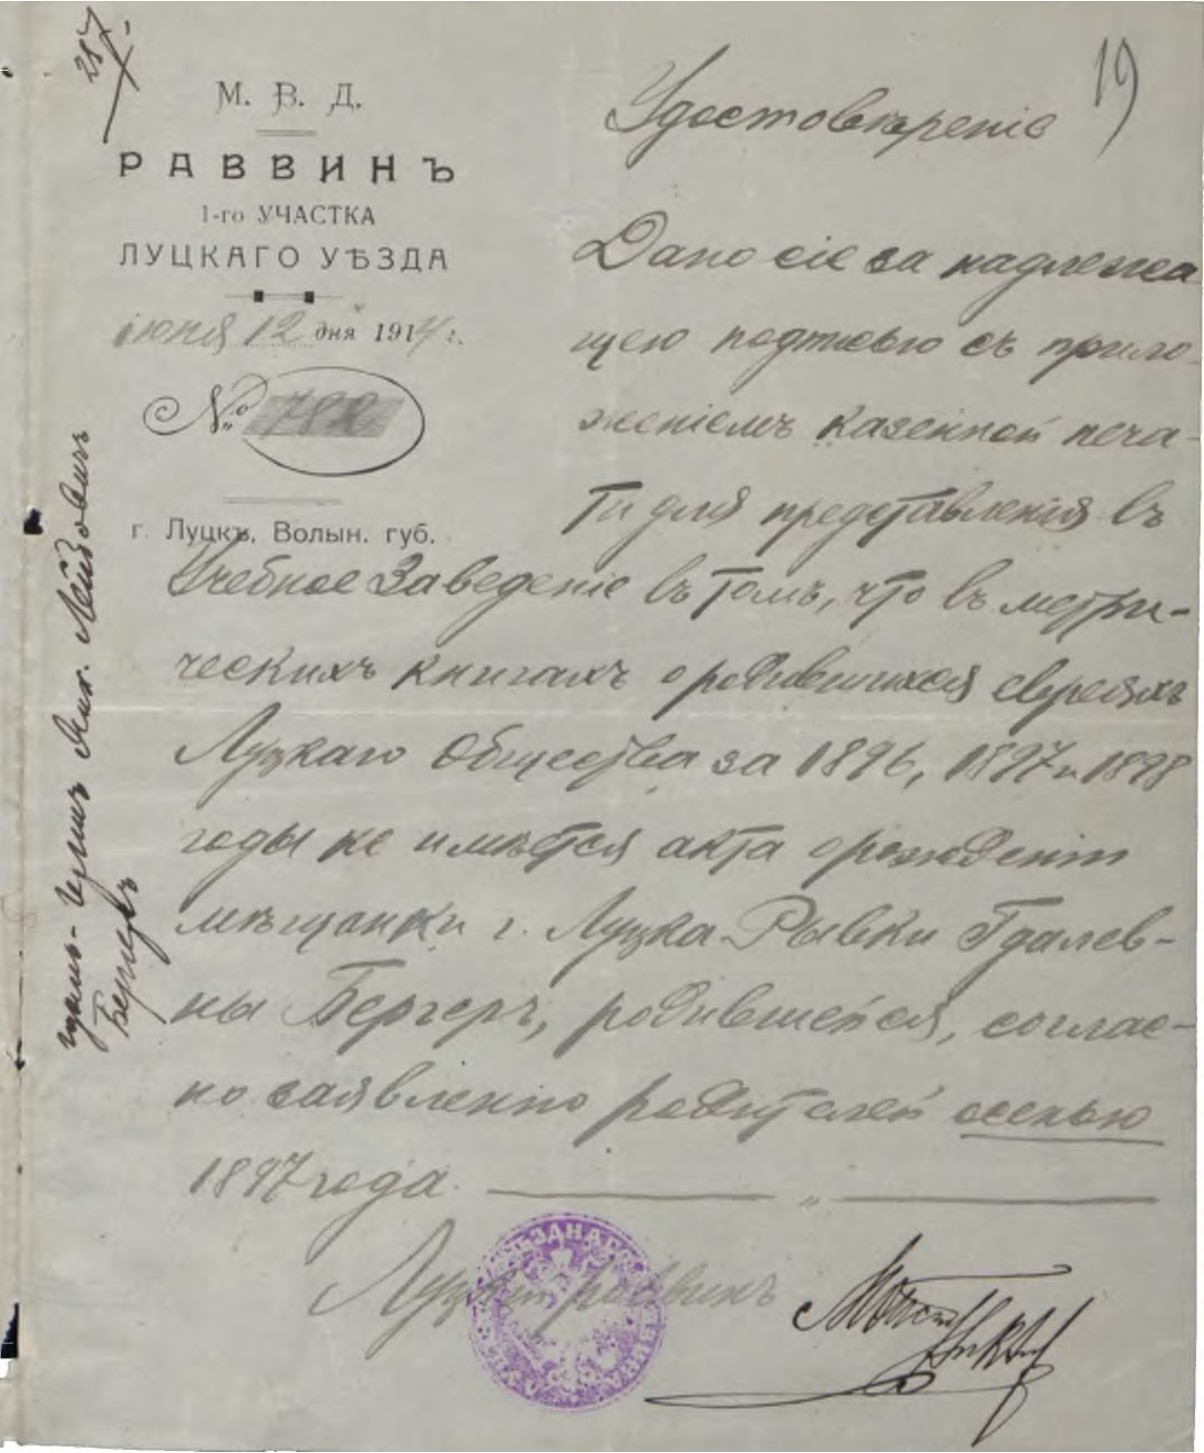 287
19
М. В. Д.
РАВВИНЪ
1-го УЧАСТКА
ЛУЦКАГО УѢЗДА
іюня 12 дня 1914 г.
№ 782
г. Луцкъ, Волын. губ.
Удостовѣреніе
Дано сіе за надлежа
щею подписью съ прило-
женіемъ казенной печа-
ти для представленія въ
Учебное Заведеніе въ томъ, что въ метри-
ческихъ книгахъ о родившихся евреяхъ
Луцкаго Общества за 1896, 1897 и 1898
годы не имѣется акта о рожденіи
мѣщанки г. Луцка Рывки Гдалев-
ны Бергеръ, родившейся, соглас-
но заявленію родителей осенью
1897 года.
Луцкій раввинъ
Лейбовичъ
Бергеръ